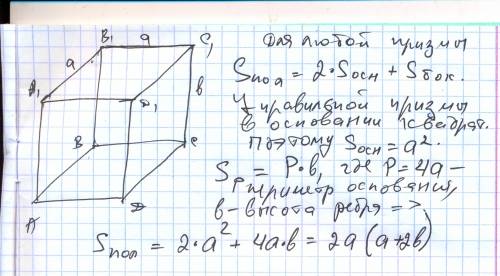 B₁ a C₁
Для любой призмы
a
Sпол = 2·Sосн + Sбок.
A₁ D₁ в
У правильной призмы
в основании квадрат.
Поэтому Sосн = a².
B C
S = P·в, где P = 4a –
периметр основания,
в – высота ребра =>
A D
Sпол = 2·a² + 4a·в = 2a (a+2в)